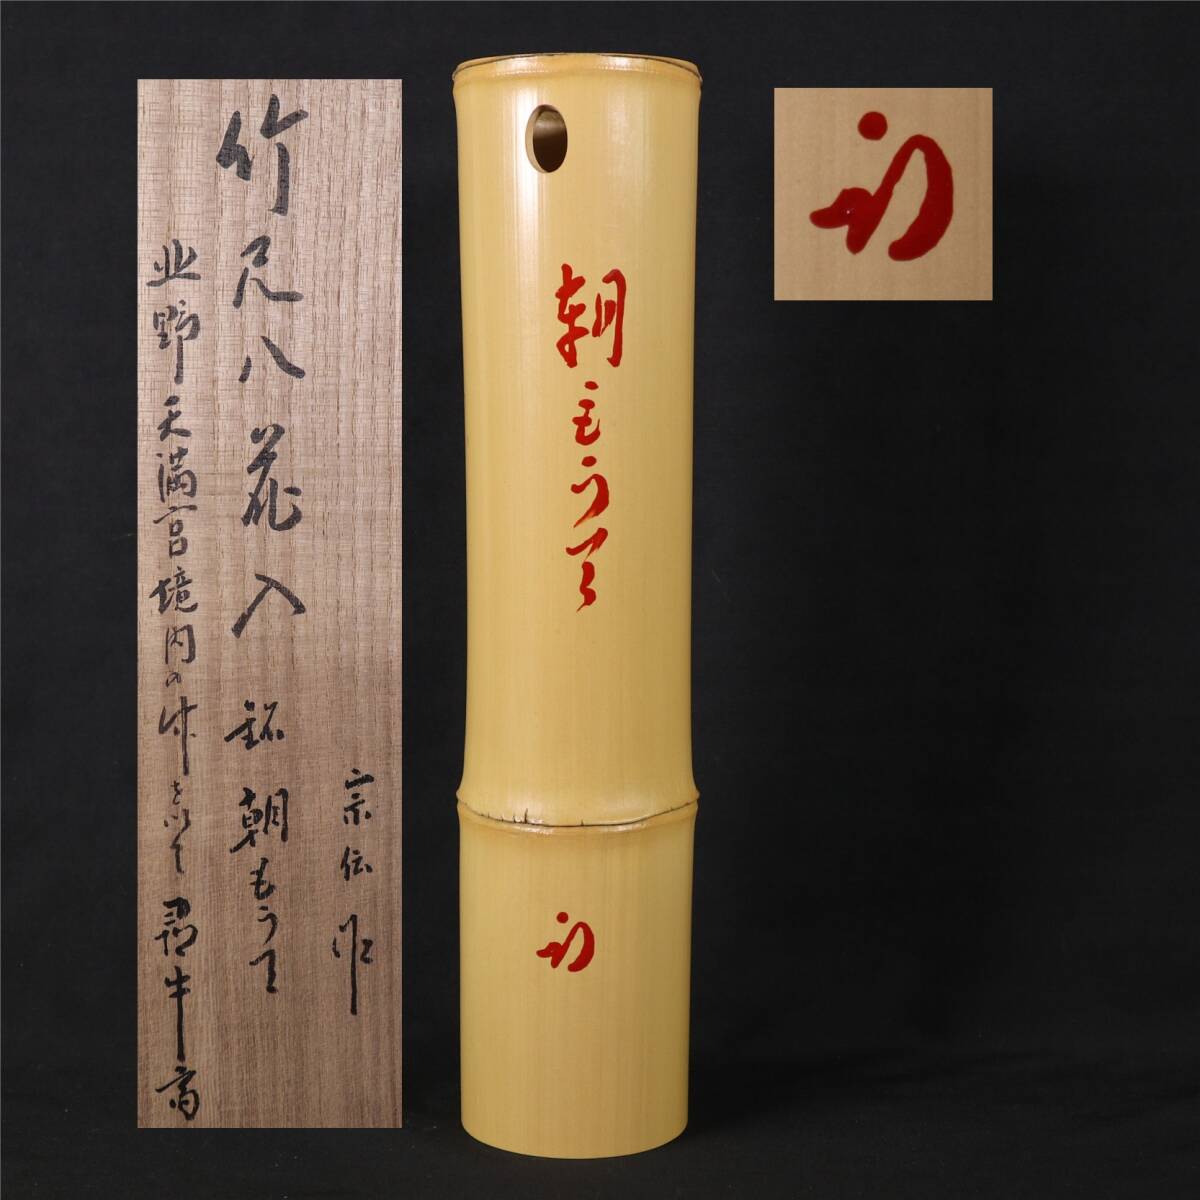 宗伝作
竹尺八花入 銘 朝もうて
北野天満宮境内の竹を以て 尋牛斎
朝もうて